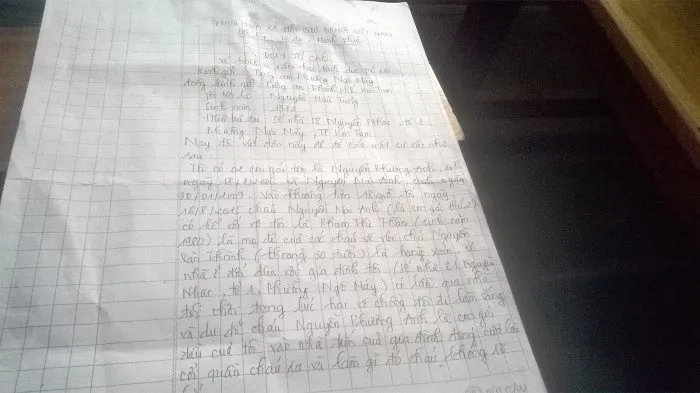 CỘNG HÒA XÃ HỘI CHỦ NGHĨA VIỆT NAM
Độc lập Tự do Hạnh phúc
ĐƠN TỐ CÁO
Kính gửi: Công an Phường Ngô Mây
đồng kính gửi: Công an Thành phố Kon Tum
Tôi tên là: Nguyễn Hữu
Sinh năm: 197
Hiện trú tại: Số nhà Nguyễn Nhạc, tổ 1,
Phường Ngô Mây, TP Kon Tum
Nay tôi viết đơn này để tố cáo một sự việc như
sau:
Tôi có 02 con gái tên là Nguyễn Phương Anh,
ngày và Nguyễn Mai Anh, sinh ngày
30/01/2009. Vào khoảng tiền 18 giờ tối ngày
16/8/2015 cháu Nguyễn Mai Anh (là con gái thứ 2)
có kể với vợ tôi là Phạm Thị Thân (sinh năm
1980) là mẹ đẻ của các cháu về việc chú Nguyễn
Văn Thành (thương sơ tuấn) là hàng xóm, có
nhà ở đối diện với gia đình tôi (số nhà Nguyễn
Nhạc, tổ 1, Phường Ngô Mây) có lần qua nhà
tôi chơi trong lúc hai vợ chồng tôi đi làm vắng
và dụ dỗ cháu Nguyễn Phương Anh là con gái
đầu của tôi vào nhà tắm của gia đình, đóng cửa lại,
cởi quần cháu ra và làm gì đó cháu không rõ